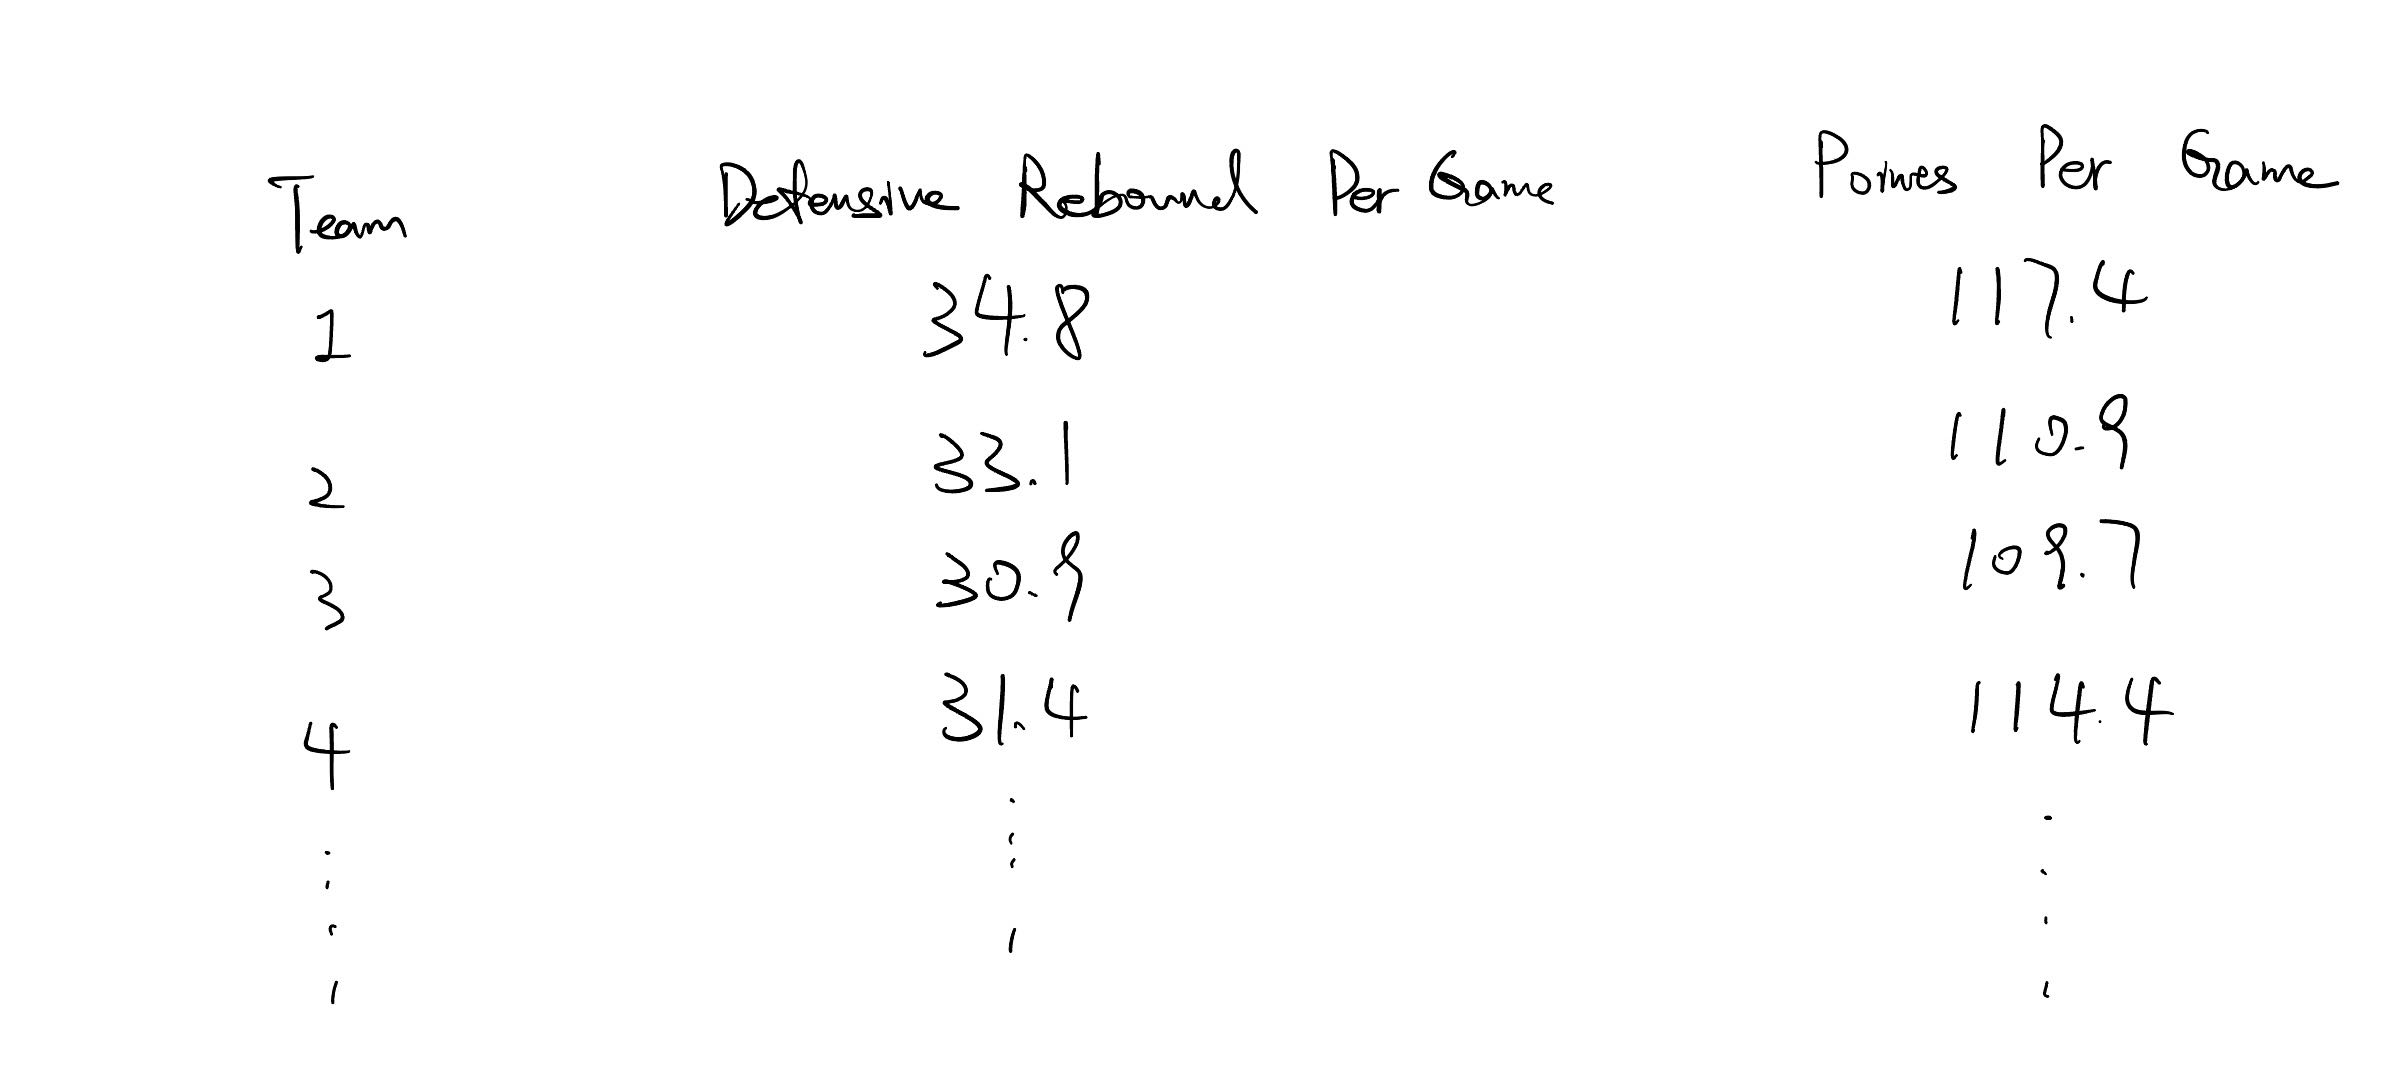 Team Defensive Rebound Per Game Points Per Game
1 34.8 117.4
2 33.1 110.9
3 30.9 109.7
4 31.4 114.4